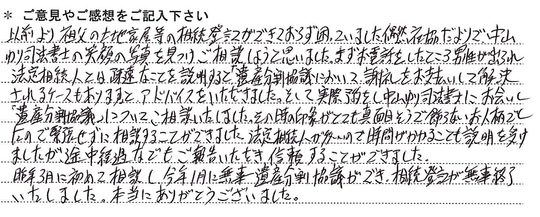 * ご意見やご感想をご記入下さい
以前より祖父の土地家屋等の相続登記ができておらず困っていました。偶然 だよりで中山
ゆり司法書士の笑顔の写真を見つけご相談しようと思いました。まずお電話をしたところ男性が出られ
法定相続人とは疎遠なことを説明すると遺産分割協議において お支払いして解決
されるケースもありますと、アドバイスをいただきました。そして実際予約をし中山ゆり司法書士にお会いし
遺産分割協議についてご相談いたしました。その時の印象がとても真面目そうで飾らないお人柄でし
たので緊張せずに相談することができました。法定相続人が多いので時間がかかることも説明を受け
ましたが途中経過などもご報告いただき信頼することができました。
昨年3月に初めて相談し、今年1月に無事遺産分割協議ができ、相続登記が無事終了
いたしました。本当にありがとうございました。